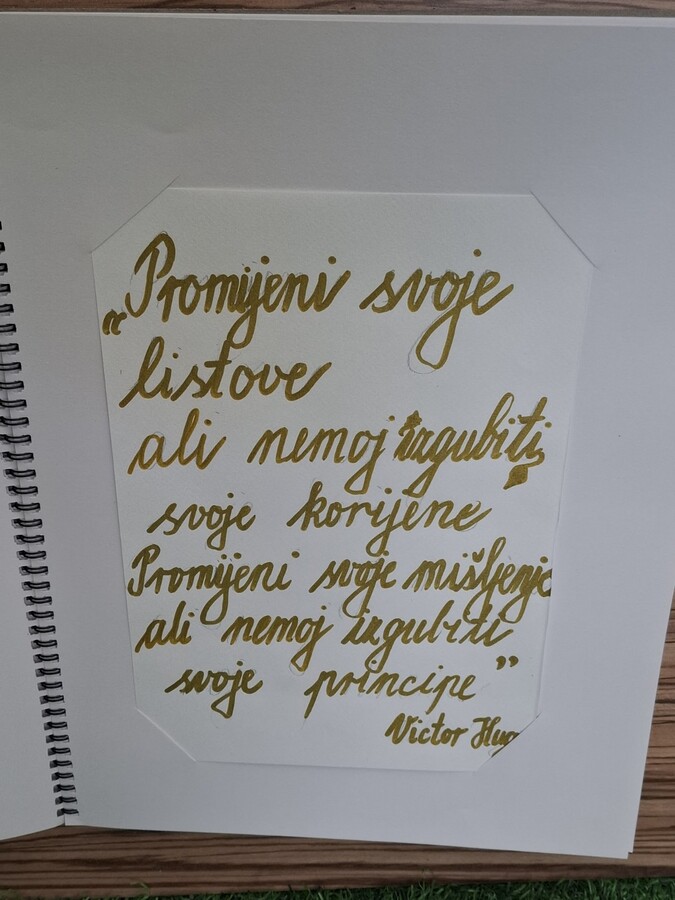 „Promijeni svoje
listove
ali nemoj izgubiti
svoje korijene
Promijeni svoje mišljenje
ali nemoj izgubiti
svoje principe”
Victor Hug